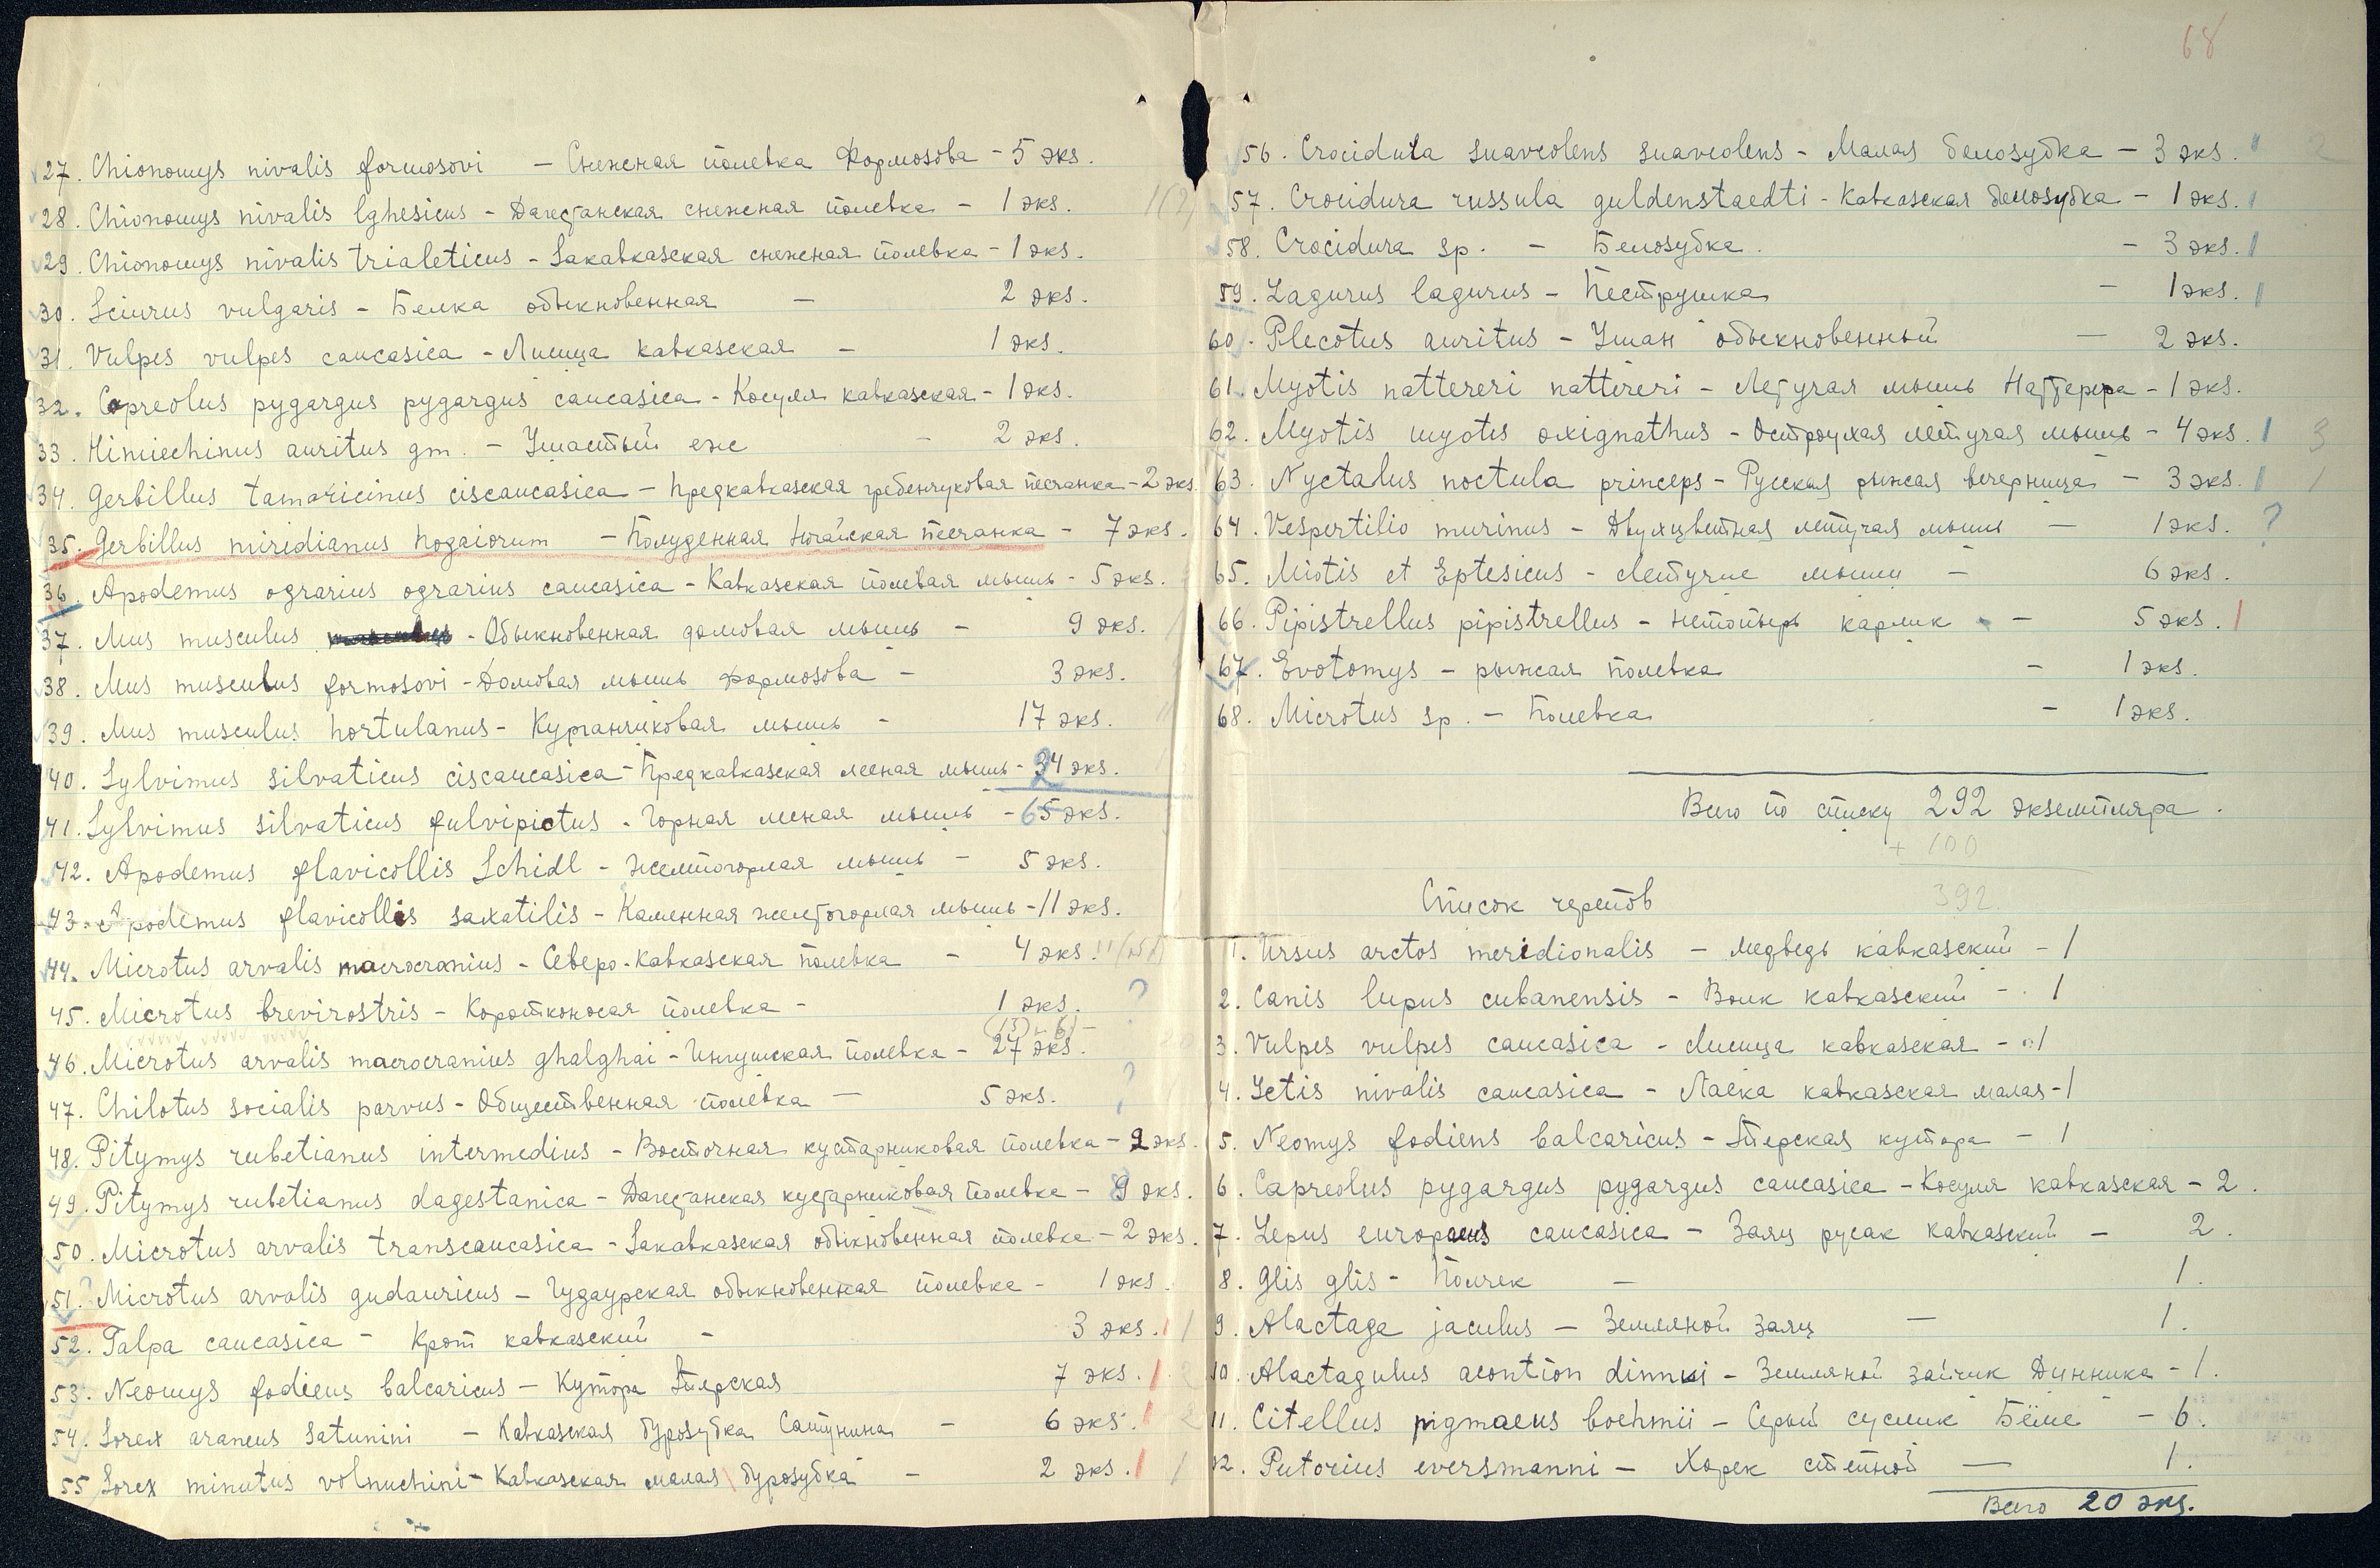 27. Chionomys nivalis formosovi — Снежная полевка Формозова — 5 экз.
28. Chionomys nivalis lghesicus — Дагестанская снежная полевка — 1 экз. 1(2)
29. Chionomys nivalis trialeticus — Закавказская снежная полевка — 1 экз.
30. Sciurus vulgaris — Белка обыкновенная — 2 экз.
31. Vulpes vulpes caucasica — Лисица кавказская — 1 экз.
32. Capreolus pygargus pygargus caucasica — Косуля кавказская — 1 экз.
33. Himiechinus auritus gm. — Ушастый еж — 2 экз.
34. Gerbillus tamaricinus ciscaucasica — Предкавказская гребенчуковая песчанка — 2 экз.
35. Gerbillus miridianus nogaiorum — Полуденная ногайская песчанка — 7 экз.
36. Apodemus ograrius ograrius caucasica — Кавказская полевая мышь — 5 экз.
37. Mus musculus — Обыкновенная домовая мышь — 9 экз.
38. Mus musculus formosovi — Домовая мышь Формозова — 3 экз.
39. Mus musculus hortulanus — Курганчиковая мышь — 17 экз.
40. Sylvimus silvaticus ciscaucasica — Предкавказская лесная мышь — 34 экз.
41. Sylvimus silvaticus fulvipictus — Горная лесная мышь — 65 экз.
42. Apodemus flavicollis Schidl — Желтогорлая мышь — 5 экз.
43. Apodemus flavicollis saxatilis — Каменная желтогорлая мышь — 11 экз.
44. Microtus arvalis macrocranius — Северо-Кавказская полевка — 4 экз.
45. Microtus brevirostris — Коротконосая полевка — 1 экз. ?
46. Microtus arvalis macrocranius ghalghai — Ингушская полевка — 27 экз.
47. Chilotus socialis parvus — Общественная полевка — 5 экз. ?
48. Pitymys rubetianus intermedius — Восточная кустарниковая полевка — 2 экз.
49. Pitymys rubetianus dagestanica — Дагестанская кустарниковая полевка — 9 экз.
50. Microtus arvalis transcaucasica — Закавказская обыкновенная полевка — 2 экз.
51. ? Microtus arvalis gudauricus — Гудаурская обыкновенная полевка — 1 экз.
52. Talpa caucasica — Крот кавказский — 3 экз. 1 1
53. Neomys fodiens balcaricus — Кутора Терская 7 экз. 1 2
54. Sorex araneus satunini — Кавказская бурозубка Сатунина — 6 экз. 1 2
55 Sorex minutus volnuchini — Кавказская малая бурозубка — 2 экз. 1 1
68
56. Crocidula suaveolens suaveolens — Малая белозубка — 3 экз. 2
57. Crocidura russula guldenstaedti — Кавказская белозубка — 1 экз.
58. Crocidura sp. — Белозубка. — 3 экз.
59. Lagurus lagurus — Пеструшка — 1 экз.
60. Plecotus auritus — Ушан обыкновенный — 2 экз.
61. Myotis nattereri nattireri — Летучая мышь Наттерера — 1 экз.
62. Myotis myotis oxignathus — Остроухая летучая мышь — 4 экз. 1 3
63. Nyctalus noctula princeps — Русская рыжая вечерница — 3 экз. 1
64. Vespertilio murinus — Двухцветная летучая мышь — 1 экз. ?
65. Miotis et Eptesicus — Летучие мыши — 6 экз.
66. Pipistrellus pipistrellus — Нетопырь карлик — 5 экз. 1
67. Evotomys — рыжая полевка — 1 экз.
68. Microtus sp. — Полевка — 1 экз.
Всего по списку 292 экземпляра.
+ 100
392
Список черепов
1. Ursus arctos meridionalis — медведь кавказский — 1
2. Canis lupus cubanensis — Волк кавказский — 1
3. Vulpes vulpes caucasica — Лисица кавказская — 1
4. Ictis nivalis caucasica — Ласка кавказская малая — 1
5. Neomys fodiens balcaricus — Терская кутора — 1
6. Capreolus pygargus pygargus caucasica — Косуля кавказская — 2.
7. Lepus europaeus caucasica — Заяц русак кавказский — 2.
8. Glis glis — Полчек — 1.
9. Alactaga jaculus — Земляной заяц — 1.
10. Alactagulus acontion dinniki — Земляной зайчик Динника — 1.
11. Citellus pigmaeus boehmii — Серый суслик Бёме — 6.
12. Putorius eversmanni — Хорек степной — 1.
Всего 20 экз.